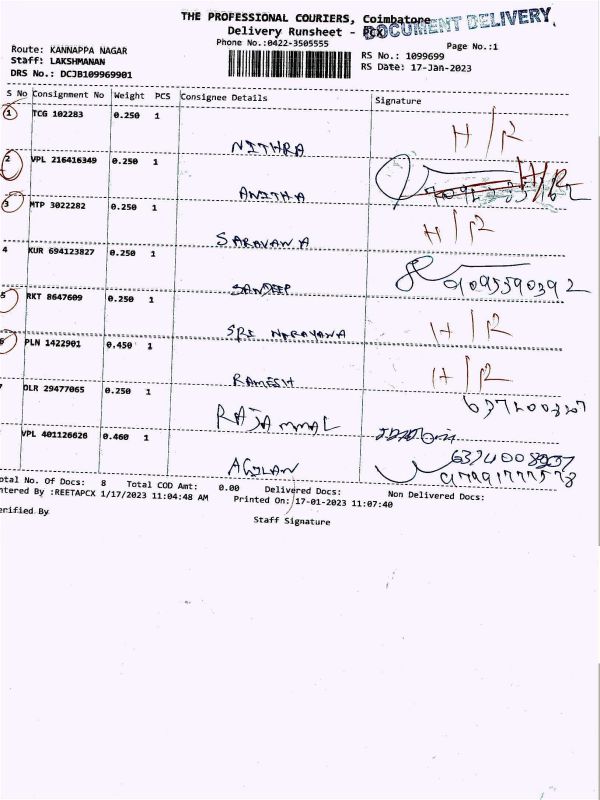 THE PROFESSIONAL COURIERS, Coimbatore
DOCUMENT DELIVERY
Delivery Runsheet - PCX
Phone No.:0422-3505555
Page No.:1
Route: KANNAPPA NAGAR
RS No.: 1099699
Staff: LAKSHMANAN
RS Date: 17-Jan-2023
DRS No.: DCJB109969901
S No Consignment No Weight PCS Consignee Details Signature
1 TCG 102283 0.250 1
NITHRA H/R
2 VPL 216416349 0.250 1
ANITHA H/R
3 MTP 3022282 0.250 1
SARAVANA H/R
4 KUR 694123827 0.250 1
SANDEEP
5 RKT 8647609 0.250 1
SRI NARAYANA H/R
6 PLN 1422901 0.450 1
RAMESH H/R
DLR 29477065 0.250 1
RAJAMMAL
VPL 401126626 0.460 1
AGILAN
otal No. Of Docs: 8 Total COD Amt: 0.00 Delivered Docs: Non Delivered Docs:
ntered By :REETAPCX 1/17/2023 11:04:48 AM Printed On: 17-01-2023 11:07:40
erified By
Staff Signature